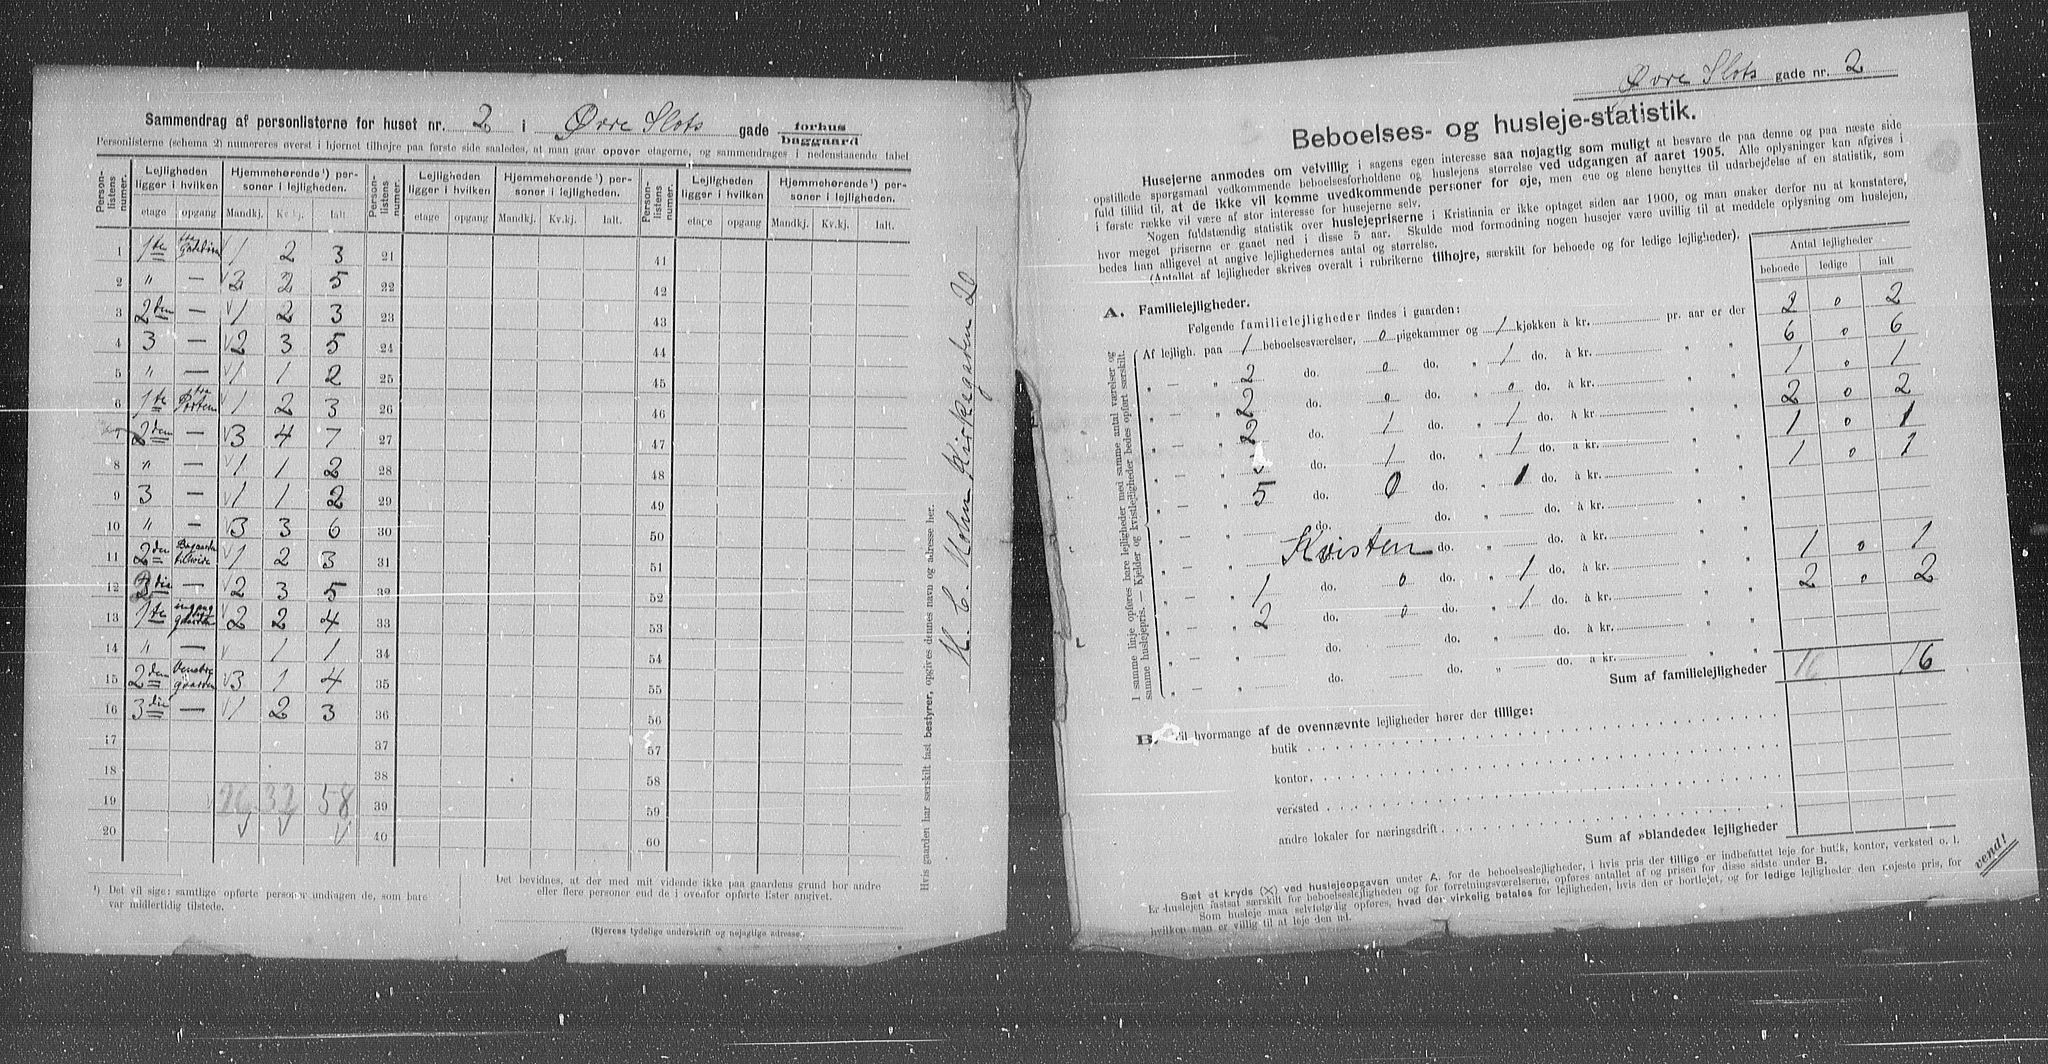 Sammendrag af personlisterne for huset nr. 2 i Øvre Slots gade forhus
baggaard
Personlisterne (schema 2) numereres øverst i hjørnet tilhøjre paa første side saaledes, at man gaar opover etagerne, og sammendrages i nedenstaaende tabel
Person-listens numer. Lejligheden ligger i hvilken Hjemmehørende¹) personer i lejligheden. Person-listens numer. Lejligheden ligger i hvilken Hjemmehørende¹) personer i lejligheden. Person-listens numer. Lejligheden ligger i hvilken Hjemmehørende¹) personer i lejligheden.
etage opgang Mandkj. Kv.kj. Ialt. etage opgang Mandkj. Kv.kj. Ialt. etage opgang Mandkj. Kv.kj. Ialt.
1 1ste 1 2 3 21 41
2 " — 3 2 5 22 42
3 2den — 1 2 3 23 43
4 3 — 2 3 5 24 44
5 " — 1 1 2 25 45
6 1ste fra Porten 1 2 3 26 46
7 2den — 3 4 7 27 47
8 " — 1 1 2 28 48
9 3 — 1 1 2 29 49
10 " — 3 3 6 30 50
11 2den 1 2 3 31 51
12 3die — 2 3 5 32 52
13 1ste 2 2 4 33 53
14 " — 1 1 34 54
15 2den 3 1 4 35 55
16 3die — 1 2 3 36 56
17 37 57
18 38 58
19 26 32 58 39 59
20 40 60
¹) Det vil sige: samtlige opførte personer undtagen de, som bare
var midlertidig tilstede.
Det bevidnes, at der med mit vidende ikke paa gaardens grund bor andre
eller flere personer end de i ovenfor opførte lister angivet.
(Ejerens tydelige underskrift og nøjagtige adresse.
Hvis gaarden har særskilt fast bestyrer, opgives dennes navn og adresse her.
H. C. Holm Kirkegaten 20
Øvre Slots gade nr. 2
Beboelses- og husleje-statistik.
Husejerne anmodes om velvillig i sagens egen interesse saa nøjagtig som muligt at besvare de paa denne og paa næste side
opstillede spørgsmaal vedkommende beboelsesforholdene og huslejens størrelse ved udgangen af aaret 1905. Alle oplysninger kan afgives i
fuld tillid til, at de ikke vil komme uvedkommende personer for øje, men ene og alene benyttes til udarbejdelse af en statistik, som
i første række vil være af stor interesse for husejerne selv.
Nogen fuldstændig statistik over huslejepriserne i Kristiania er ikke optaget siden aar 1900, og man ønsker derfor nu at konstatere,
hvor meget priserne er gaaet ned i disse 5 aar. Skulde mod formodning nogen husejer være uvillig til at meddele oplysning om huslejen,
bedes han alligevel at angive lejlighedernes antal og størrelse.
(Antallet af lejligheder skrives overalt i rubrikerne tilhøjre, særskilt for beboede og for ledige lejligheder).
Antal lejligheder
beboede ledige ialt
A. Familielejligheder.
Følgende familielejligheder findes i gaarden:
I samme linje opføres bare lejligheder med samme antal værelser og
samme huslejepris. — Kjelder og kvistlejligheder bedes opført særskilt.
Af lejligh. paa 1 beboelsesværelser, 0 pigekammer og 1 kjøkken à kr. pr. aar er der 2 0 2
" — " 2 do. 0 do. " 1 do. à kr. " " 6 0 6
" — " 2 do. 0 do. " 0 do. à kr. " " 1 0 1
" — " 2 do. 1 do. " 1 do. à kr. " " 2 0 2
" — " do. 1 do. " 1 do. à kr. " " 1 0 1
" — " 5 do. 0 do. " 1 do. à kr. " " 1 0 1
" — " do. do. " do. à kr. " "
" — " Kvisten do. " do. à kr. " "
" — " 1 do. 0 do. " 1 do. à kr. " " 1 0 1
" — " 2 do. 0 do. " 1 do. à kr. " " 2 0 2
" — " do. do. " do. à kr. " "
" — " do. do. " do. à kr. " "
Sum af familielejligheder 16 16
B. Til hvormange af de ovennævnte lejligheder hører der tillige:
butik
kontor
verksted
andre lokaler for næringsdrift
Sum af »blandede« lejligheder
Sæt et kryds (X) ved huslejeopgaven under A. for de beboelseslejligheder, i hvis pris der tillige er indbefattet leje for butik, kontor, verksted o. l.
Er huslejen fastsat særskilt for beboelseslejligheden og for forretningsværelserne, opføres antallet af og prisen for disse sidste under B.
Som husleje maa selvfølgelig opføres, hvad der virkelig betales for lejligheden, hvis den er bortlejet, og for ledige lejligheder den højeste pris, for
hvilken man er villig til at leje den ud.
vend!